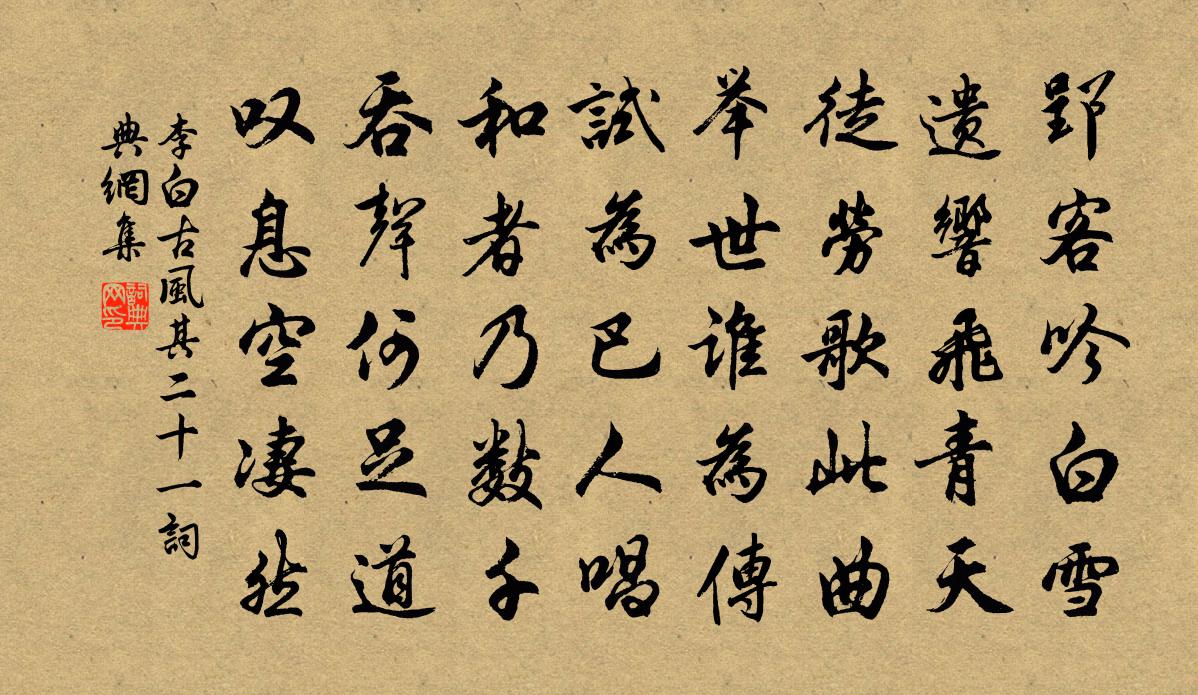 郢客吟白雪
遗響飛青天
徒勞歌此曲
举世誰為傳
試為巴人唱
和者乃数千
吞聲何足道
叹息空凄然
李白古風其二十一詞
典網集
詞典网印